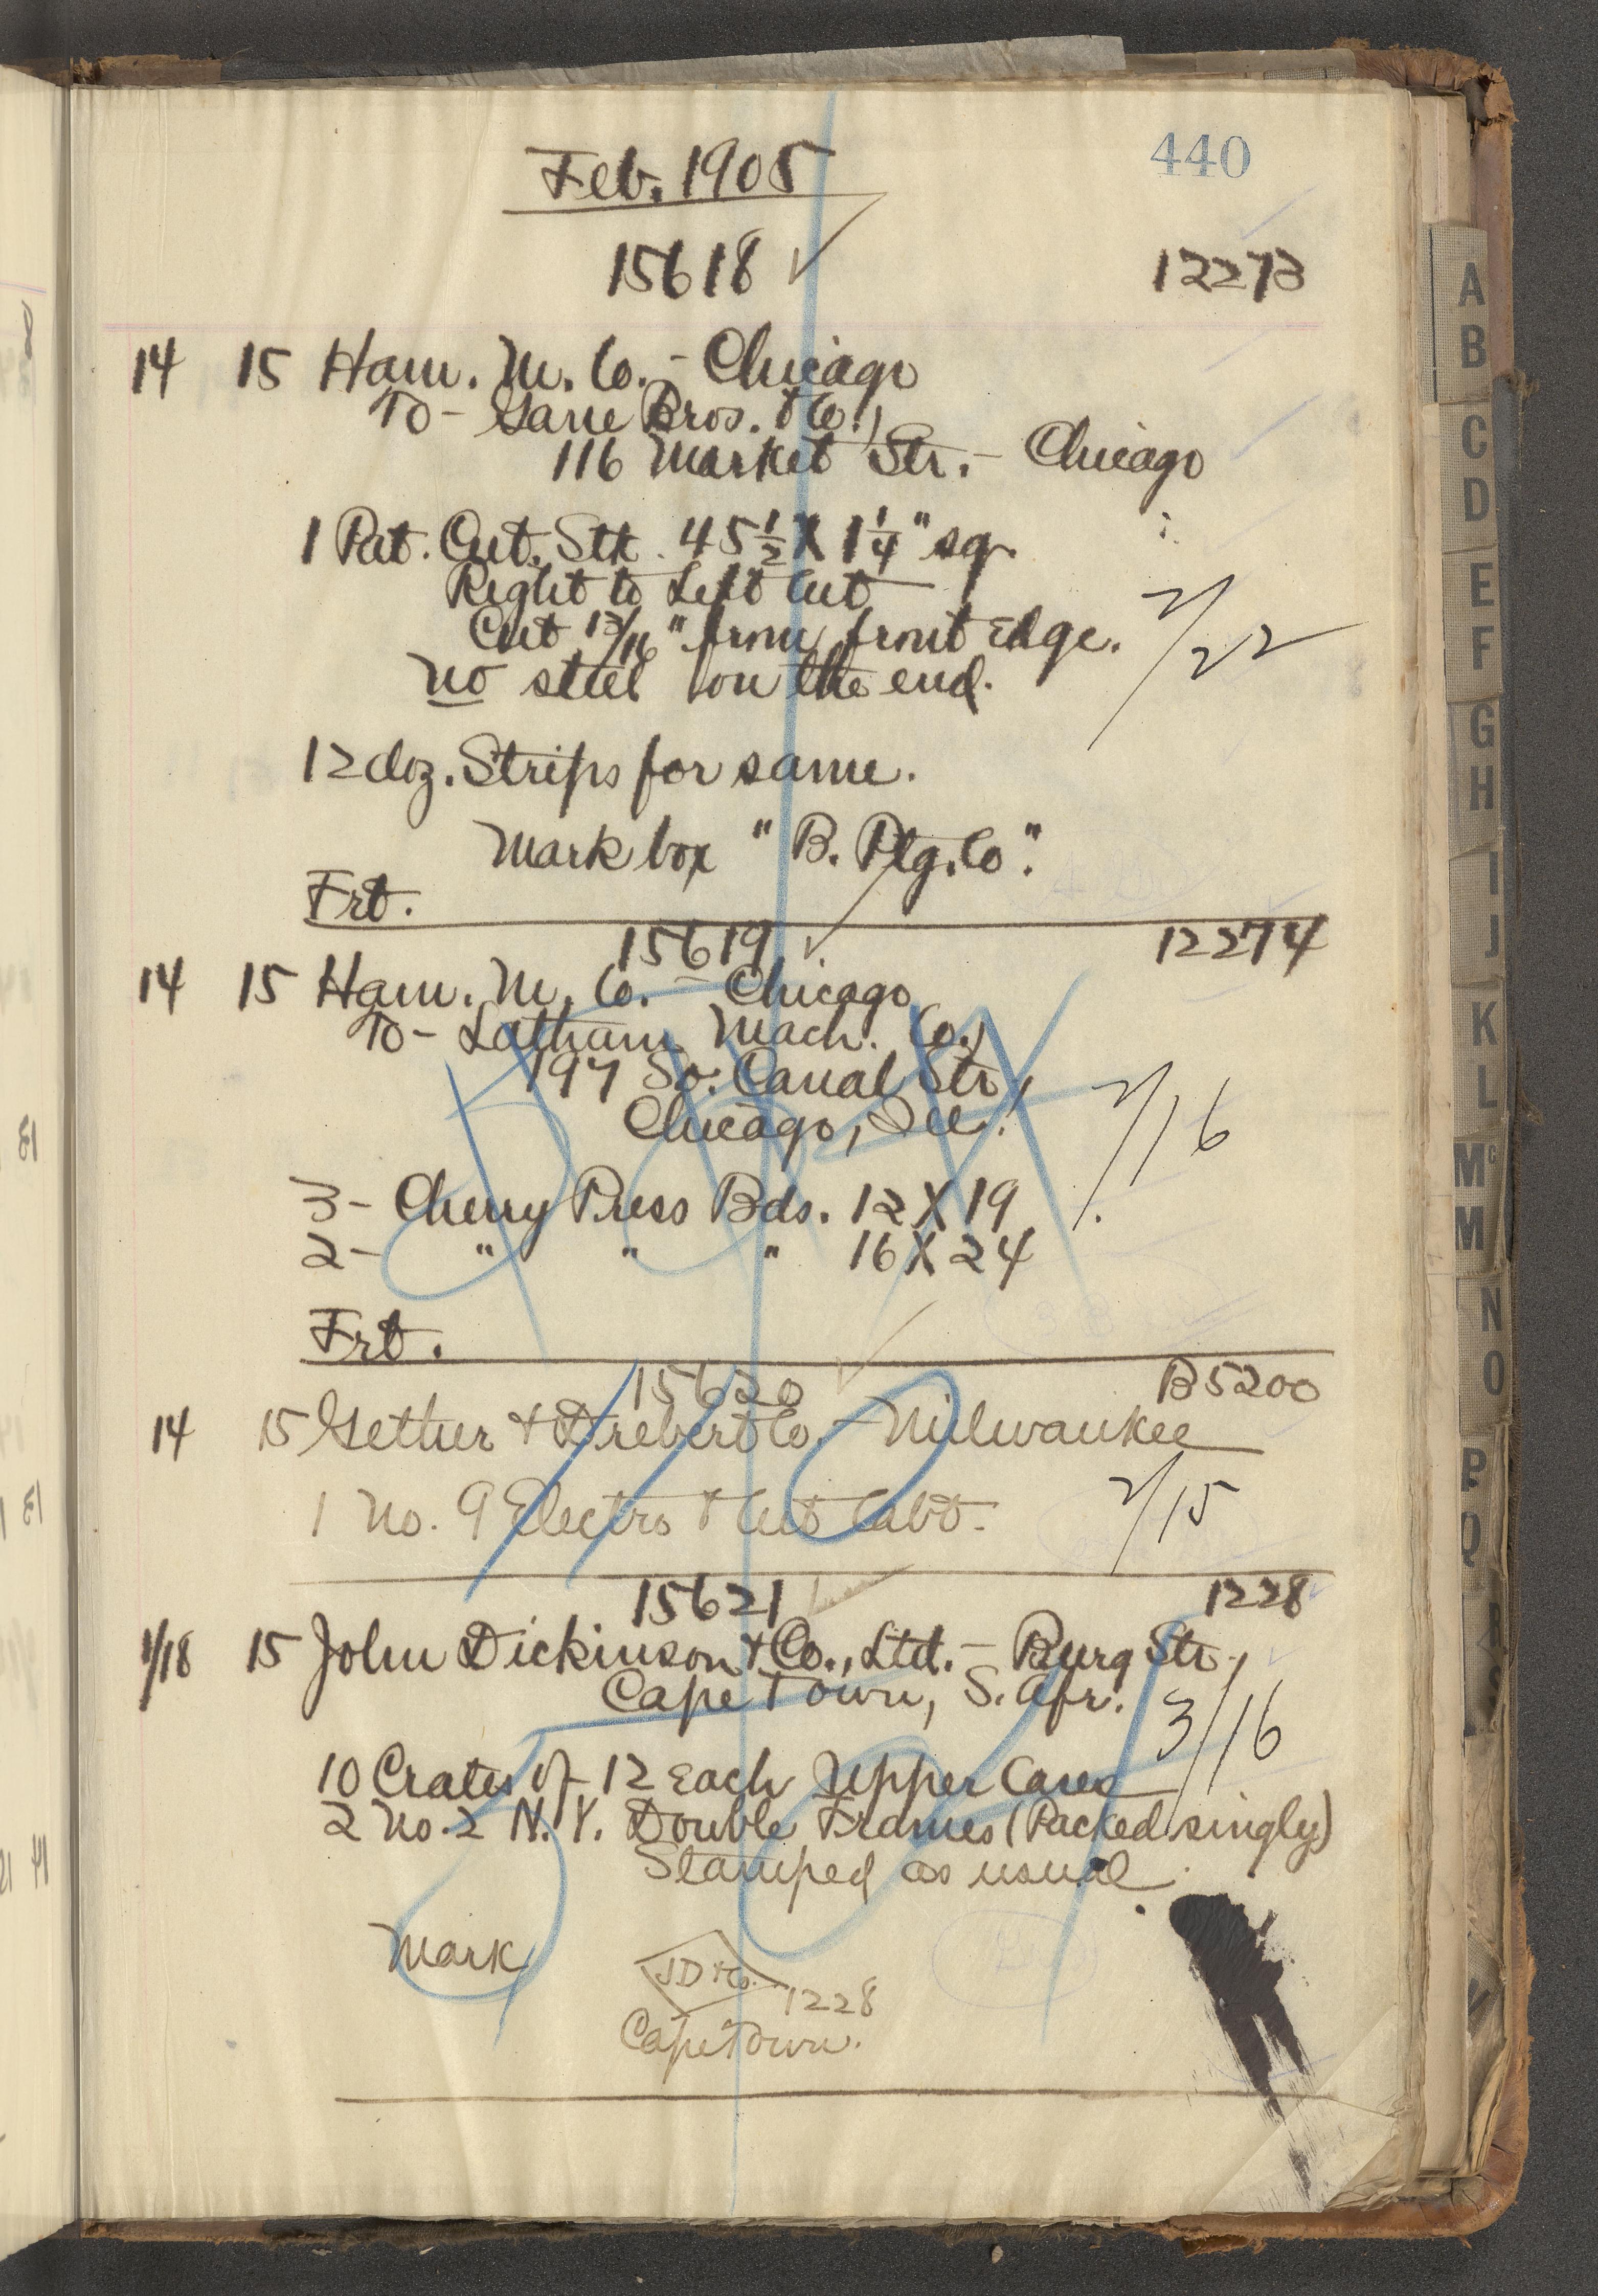 440
Feb. 1905
15618 12273
14 15 Ham. M. Co. - Chicago
To - Gane Bros. & Co.,
116 Market Str. - Chicago
1 Pat. Cut. Stk. 45 1/2 X 1 1/4" sq.
Right to Left Cut
Cut 13/16" from front Edge.
No steel on the end.
2/22
12 doz. Strips for same.
Mark box "B. Ptg. Co".
Frt.
15619 12274
14 15 Ham. M. Co. - Chicago
To - Latham Mach. Co.,
197 So. Canal Str.,
Chicago, Ill.
2/16
3 - Cherry Press Bds. 12 X 19
2 - " " " 16 X 24
Frt.
15620 B5200
14 15 Gether & Drebert Co. - Milwaukee
1 No. 9 Electro & Cut Cabt. 2/15
15621 1228
1/18 15 John Dickinson & Co., Ltd. - Burg Str.,
Cape Town, S. Afr.
3/16
10 Crates of 12 Each Upper Cases
2 No. 2 N.Y. Double Frames (Packed singly)
Stamped as usual.
Mark
JD & Co. 1228
Cape Town.
A
B
C
D
E
F
G
H
I
J
K
L
Mc
M
N
O
P
Q
R
S